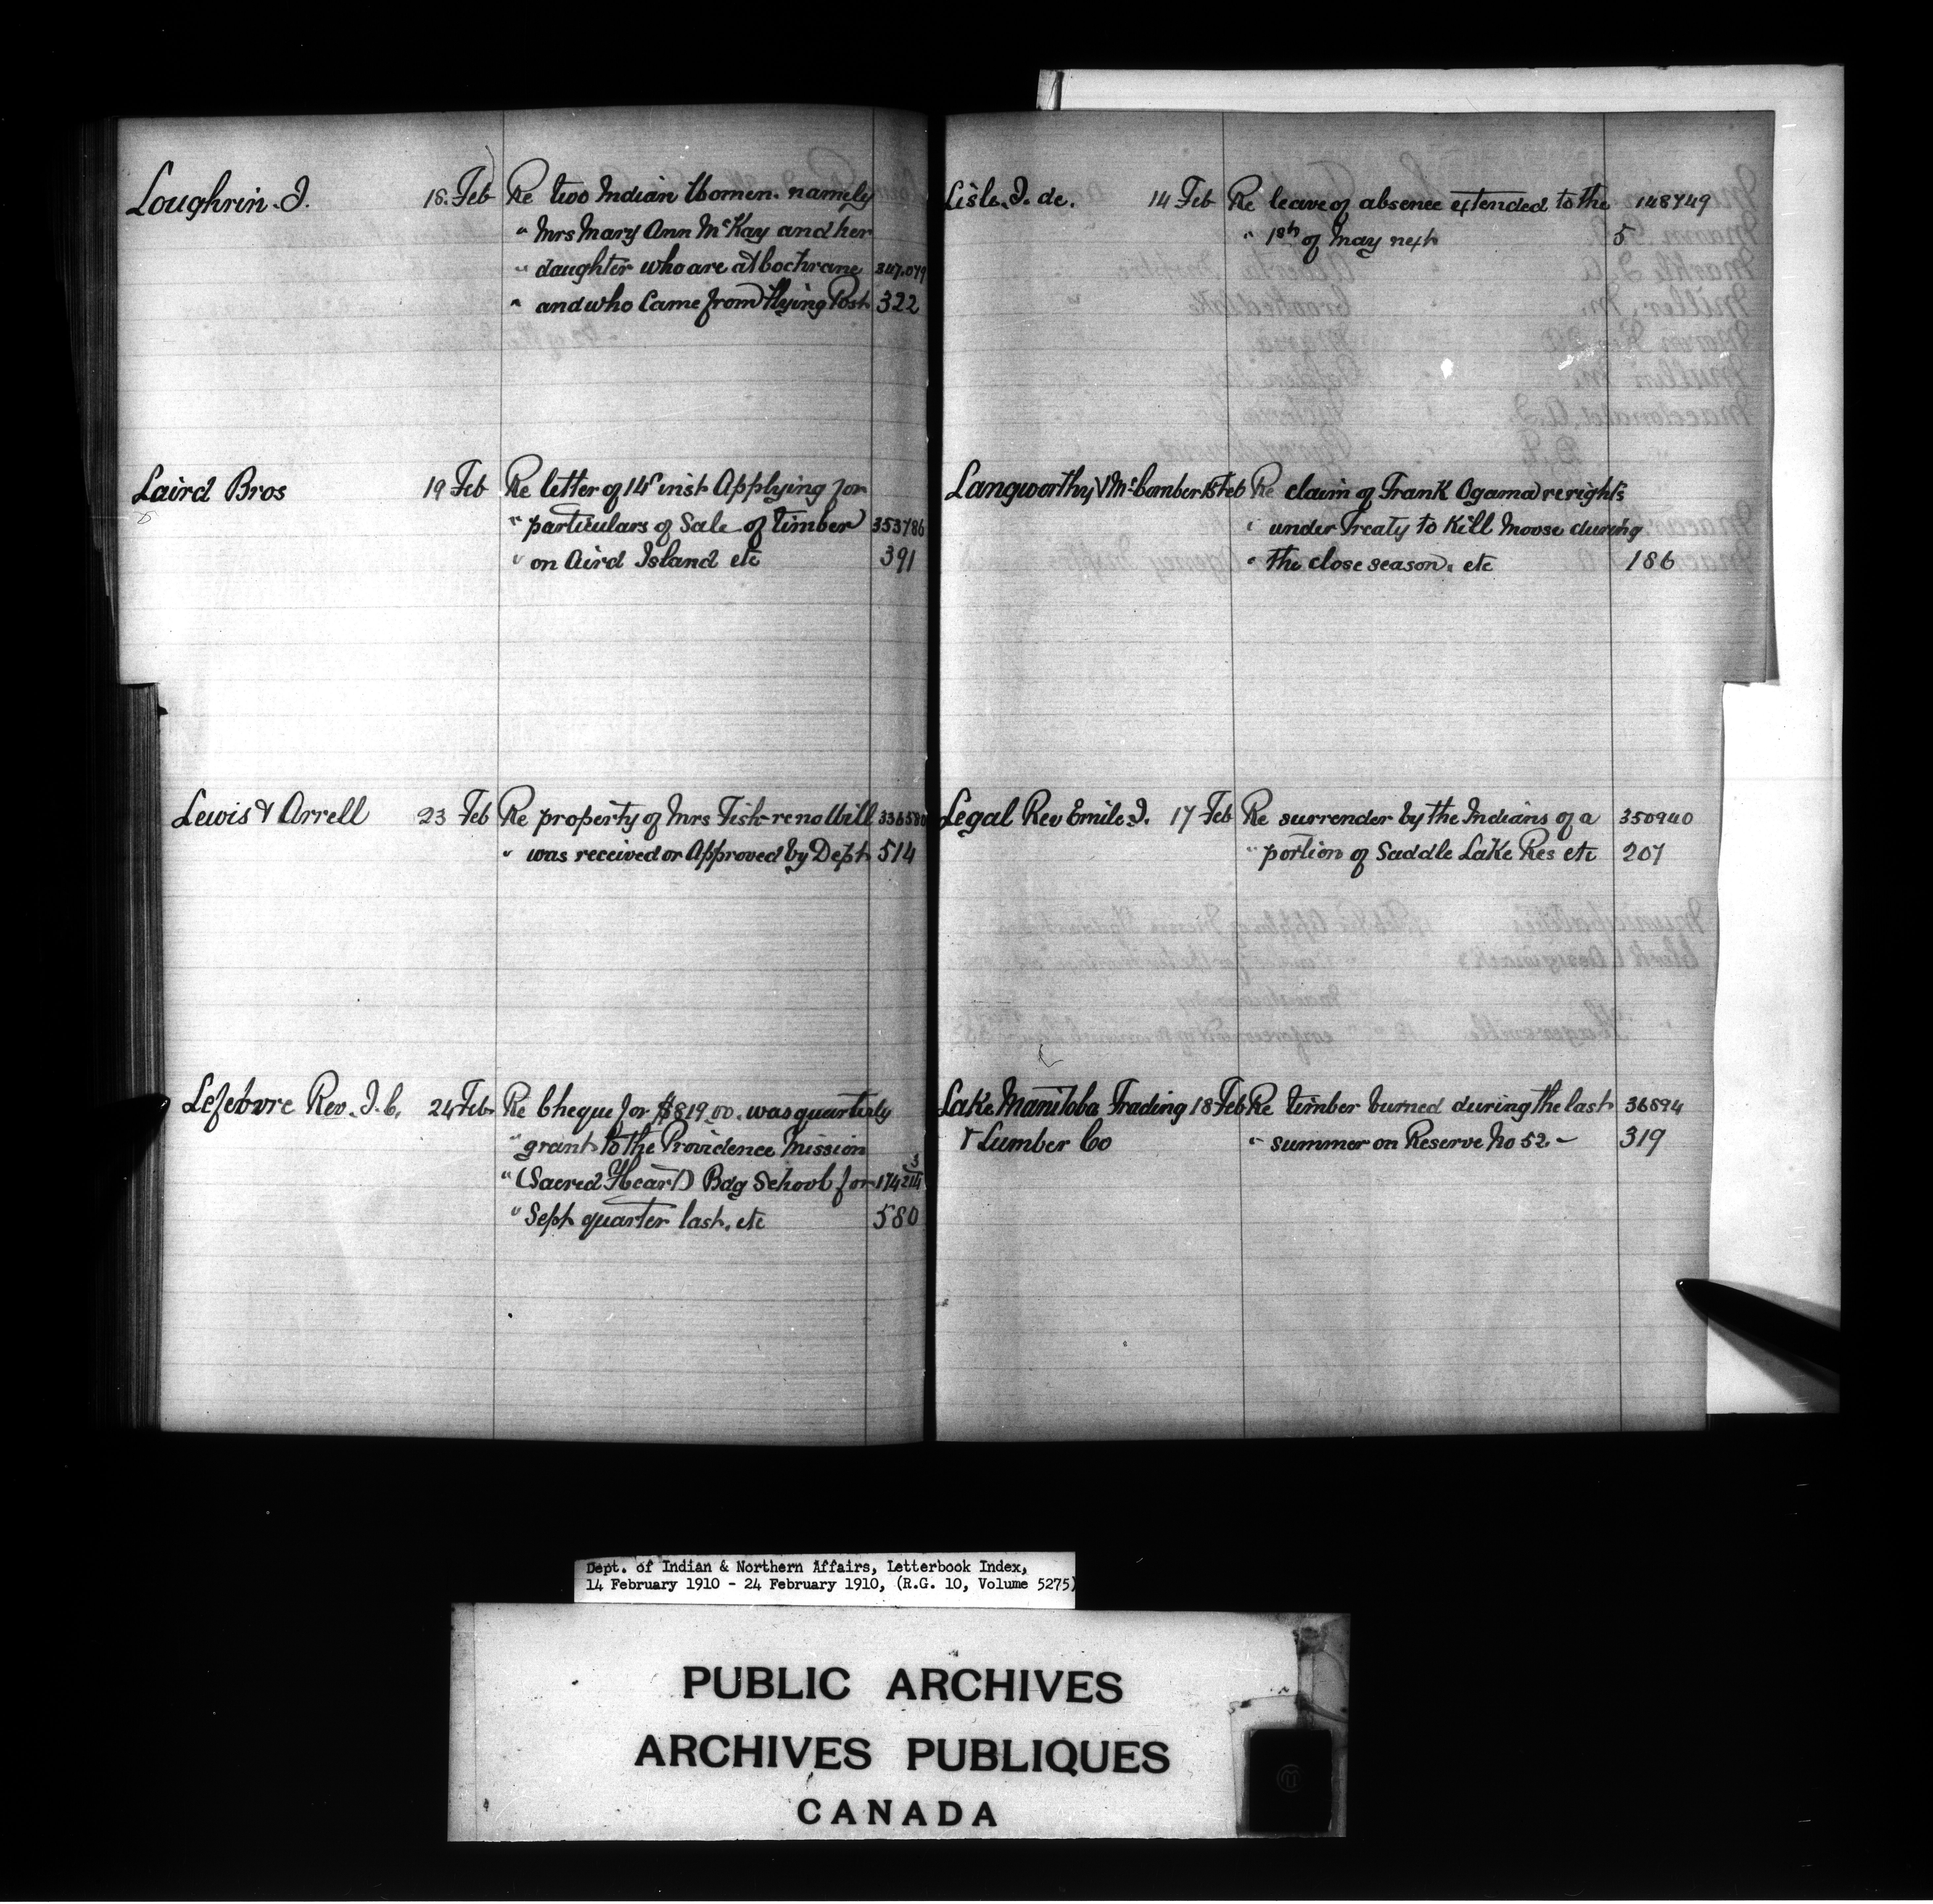 Loughrin. J. 18. Feb Re two Indian Women. namely
" Mrs Mary Ann McKay and her
" daughter who are at Cochrane 347,079
" and who Came from Flying Post 322
Laird Bros 19 Feb Re letter of 14" inst Applying for
" particulars of Sale of timber 353786
" on Aird Island etc 391
Lewis & Arrell 23 Feb Re property of Mrs Fish - re no Will 336580
" was received or Approved by Dept 514
Lefebvre Rev. J. C. 24 Feb Re Cheque for $819.00. was quarterly
" grant to the Providence Mission
" (Sacred Heart) Bdg School for 174214
" Sept quarter last. etc 580
Lisle. J. de. 14 Feb Re leave of absence extended to the 148749
" 1st of May next 5
Langworthy & McComber 15 Feb Re claim of Frank Ogama re rights
" under Treaty to Kill Moose during
" the close season. etc 186
Legal Rev Emile J. 17 Feb Re surrender by the Indians of a 350940
" portion of Saddle Lake Res etc 207
Lake Manitoba Trading 18 Feb Re timber burned during the last 36894
& Lumber Co " summer on Reserve No 52. - 319
Dept. of Indian & Northern Affairs, Letterbook Index,
14 February 1910 - 24 February 1910, (R.G. 10, Volume 5275)
PUBLIC ARCHIVES
ARCHIVES PUBLIQUES
CANADA